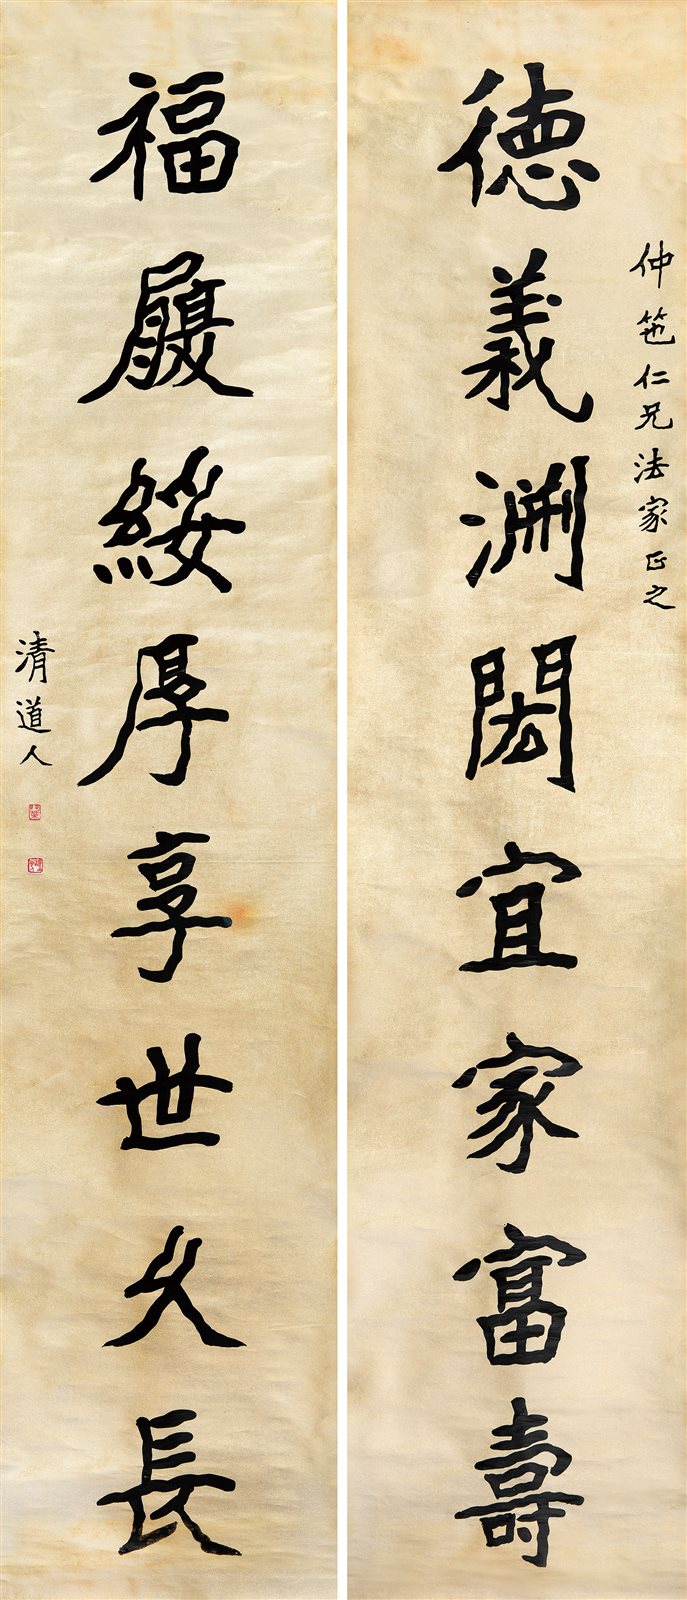 仲仁兄法家正之
德義淵閎宜家富壽
福履綏厚享世久長
清道人